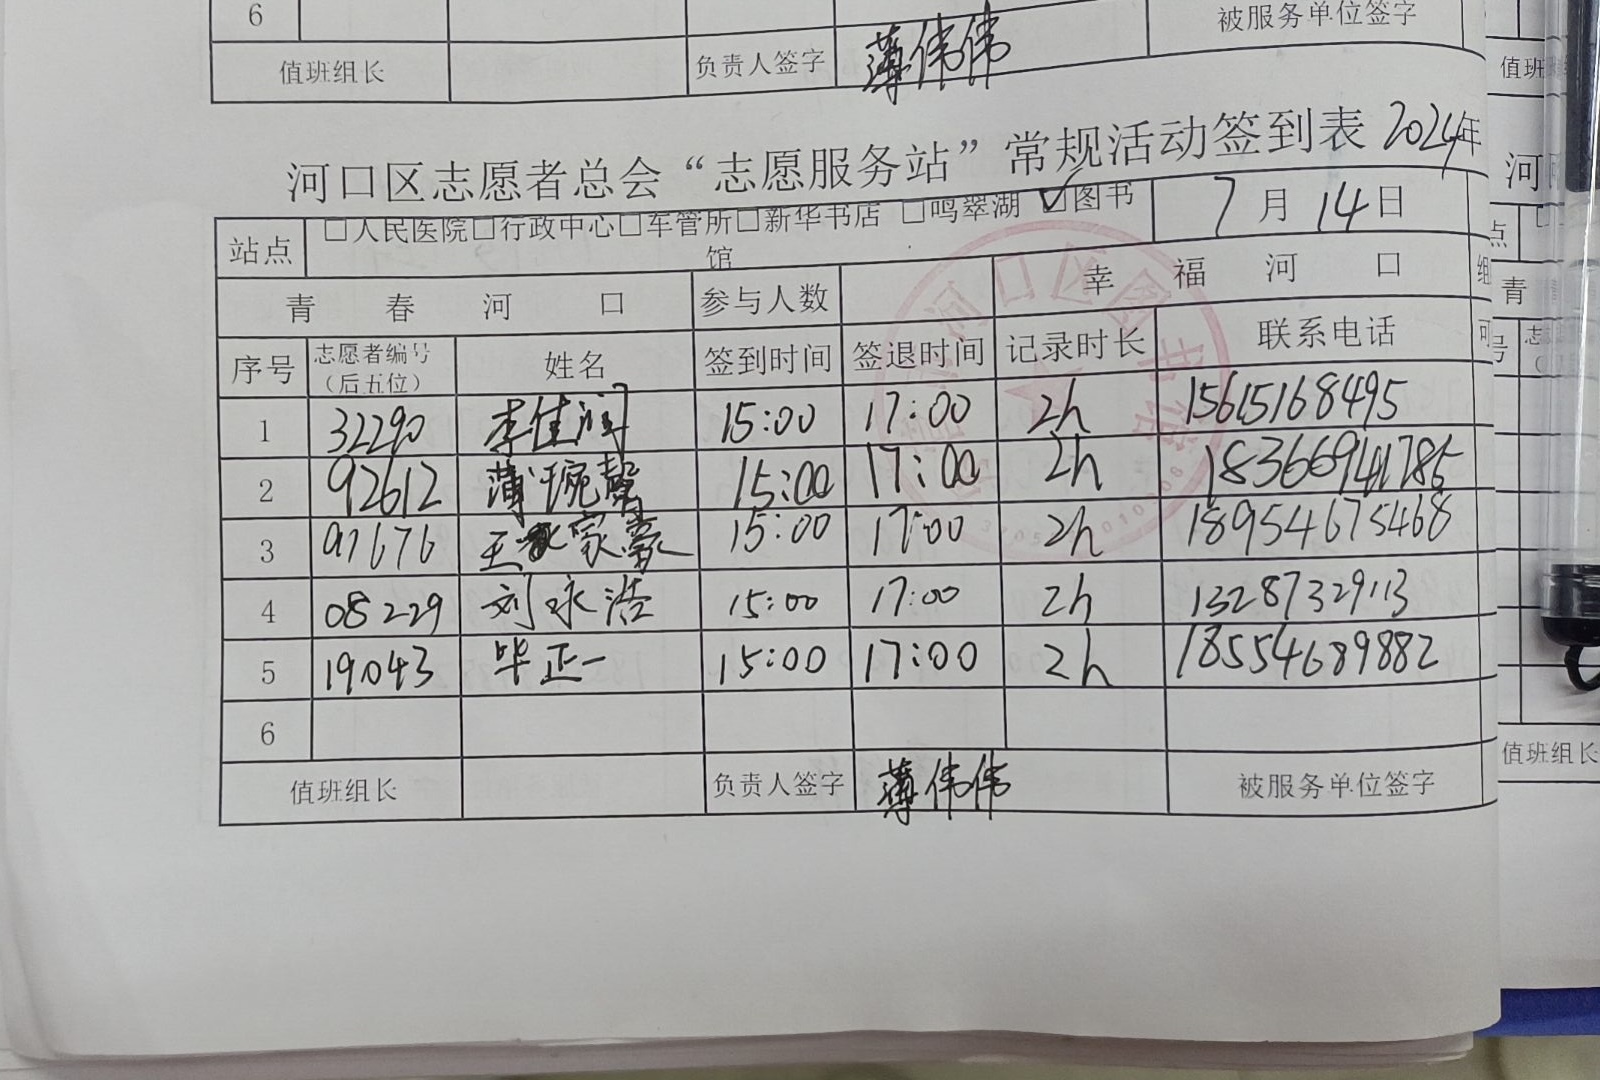 6
被服务单位签字
值班组长 负责人签字 薄伟伟
值班
河口区志愿者总会“志愿服务站”常规活动签到表 2024年
河
站点 □人民医院□行政中心□车管所□新华书店 □鸣翠湖 ☑图书馆 7月14日
点
青春河口 参与人数 幸福河口 组
青
序号 志愿者编号（后五位） 姓名 签到时间 签退时间 记录时长 联系电话
号
1 32290 李佳润 15:00 17:00 2h 15615168495
2 92612 薄琬馨 15:00 17:00 2h
3 97676 王家豪 15:00 17:00 2h 18954675468
4 08229 刘永浩 15:00 17:00 2h 13287329113
5 19043 毕正一 15:00 17:00 2h 18554689882
6
值班组长 负责人签字 薄伟伟 被服务单位签字
值班组长